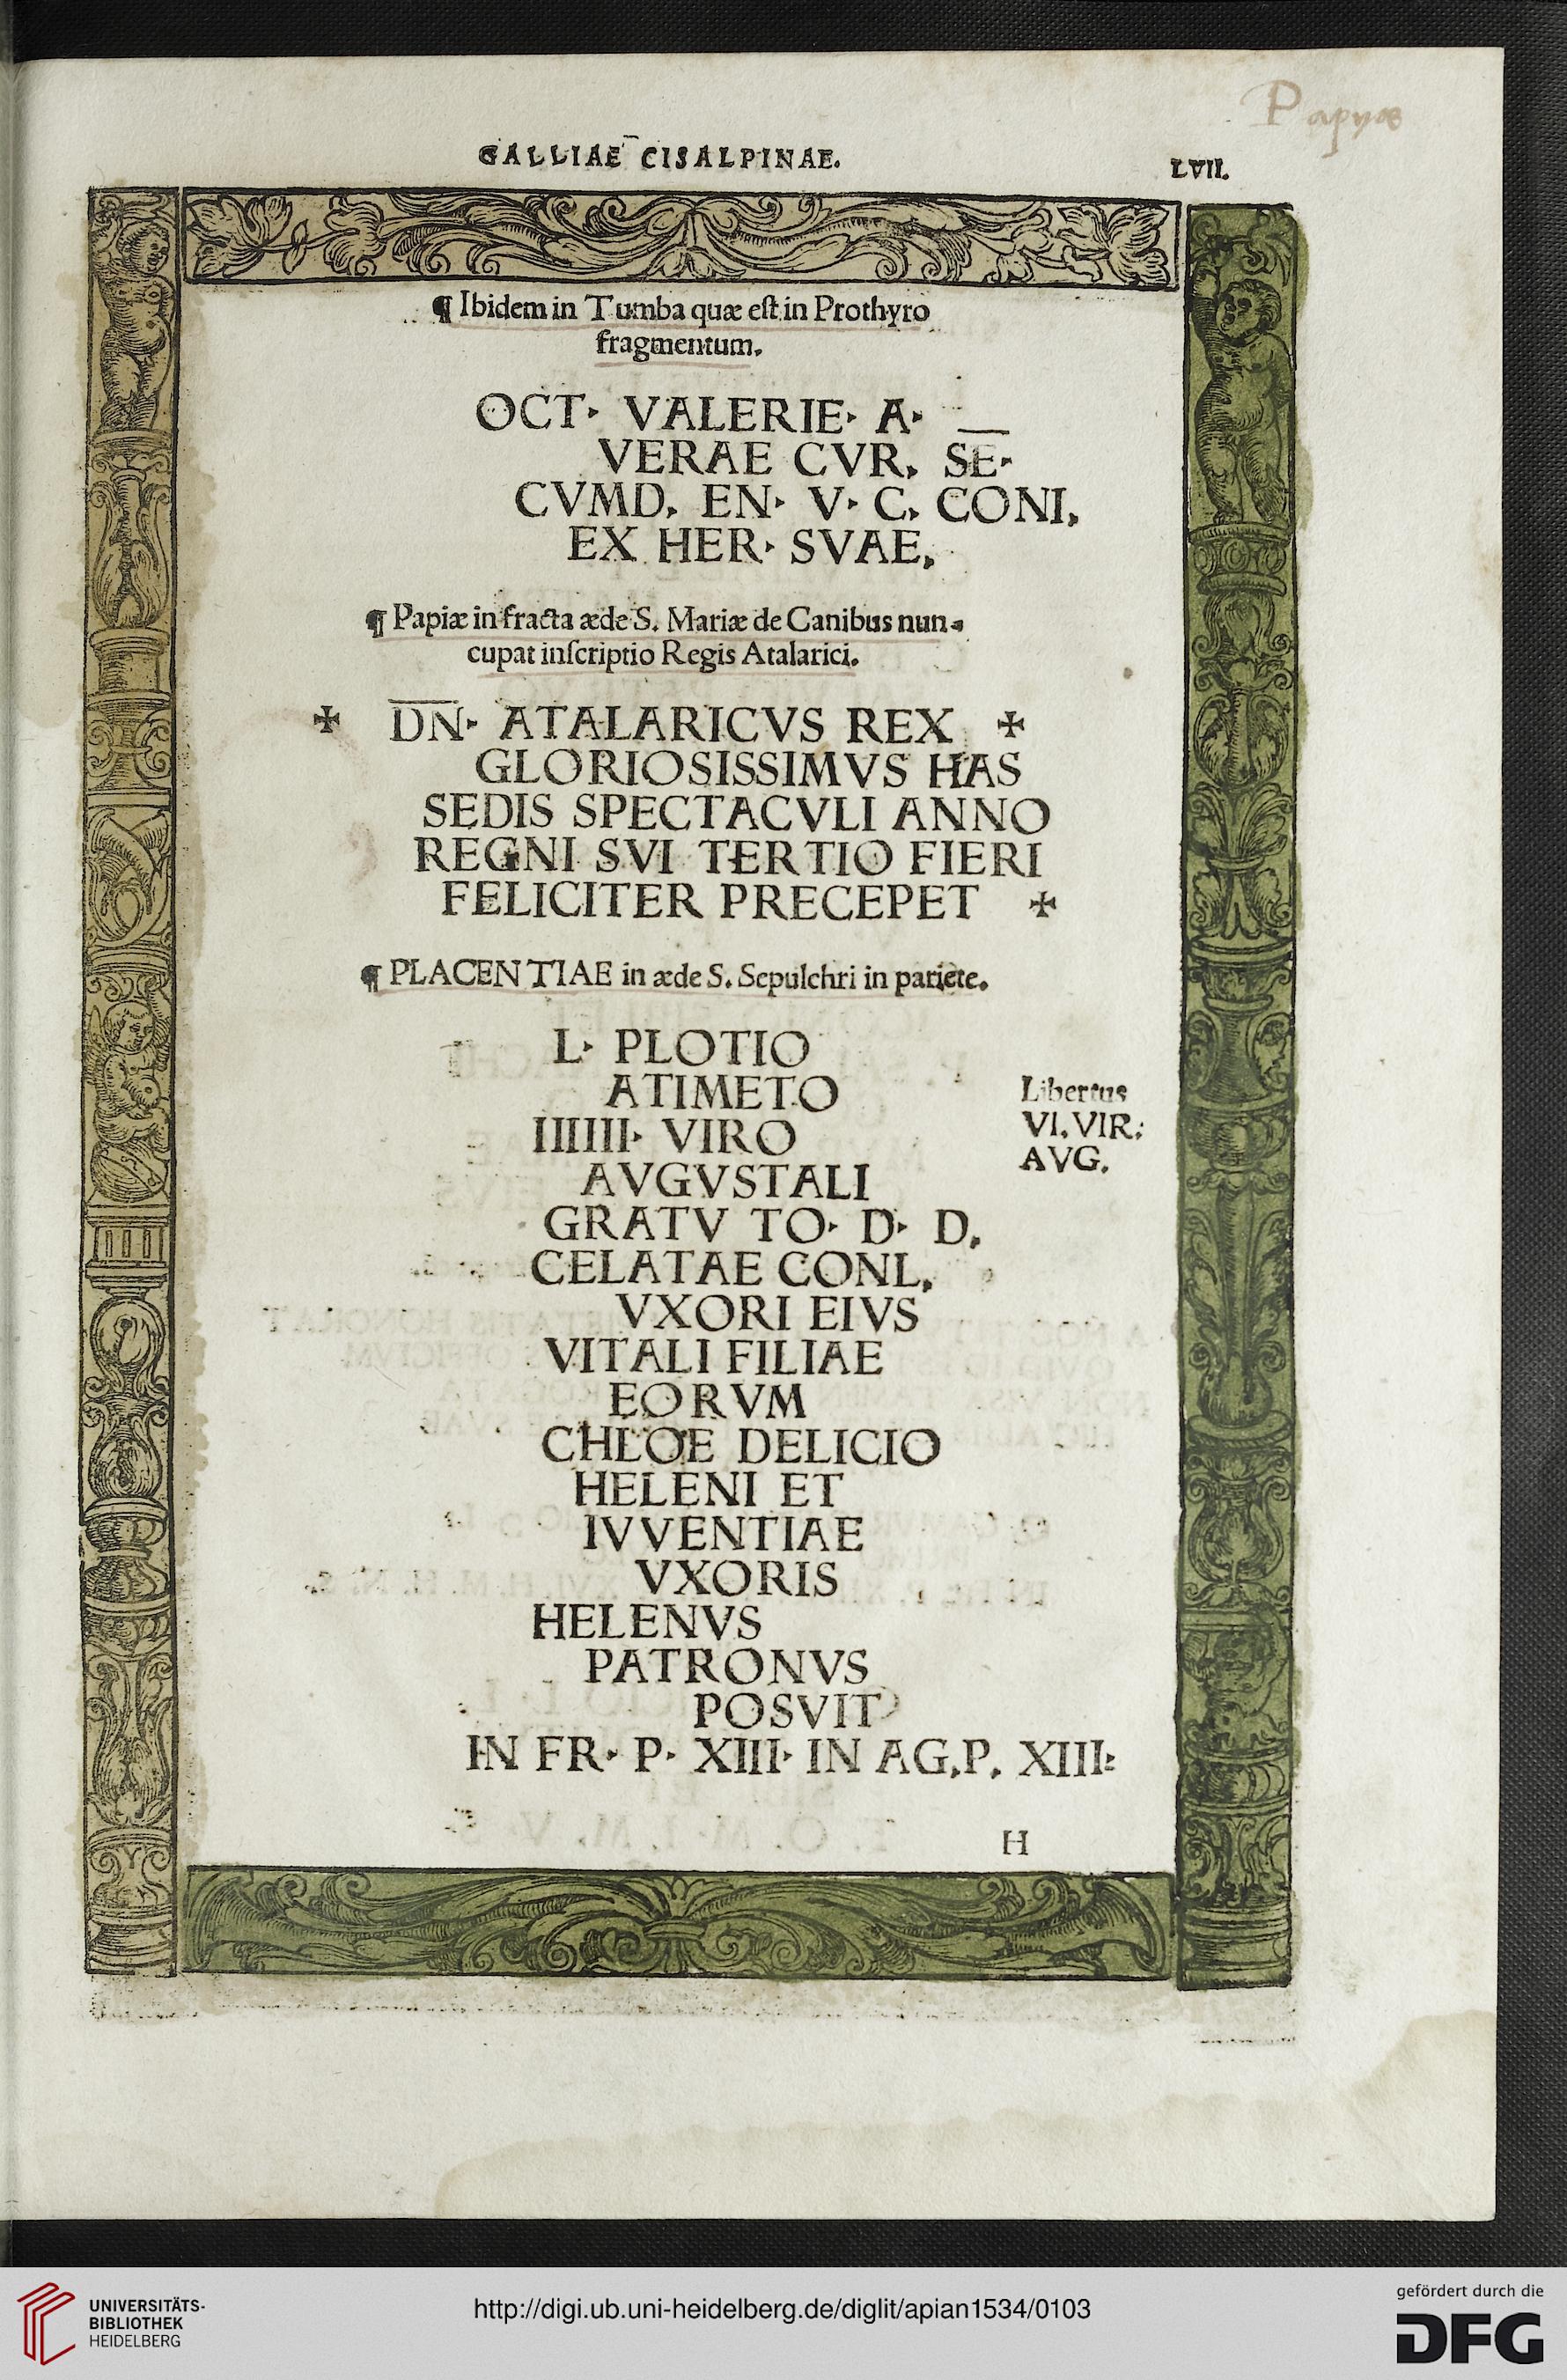 Papyae
GALLIAE CISALPINAE.
LVII.
¶ Ibidem in Tumba quæ eſt in Prothyro
fragmentum.
OCT· VALERIE· A·
VERAE CVR. SE·
CVMD. EN· V· C. CONI.
EX HER· SVAE.
¶ Papiæ in fracta æde S. Mariæ de Canibus nun-
cupat inſcriptio Regis Atalarici.
✠ D̅N̅· ATALARICVS REX ✠
GLORIOSISSIMVS HAS
SEDIS SPECTACVLI ANNO
REGNI SVI TERTIO FIERI
FELICITER PRECEPET ✠
¶ PLACENTIAE in æde S. Sepulchri in pariete.
L· PLOTIO
ATIMETO
IIIIII· VIRO
AVGVSTALI
Libertus
VI. VIR:
AVG.
GRATV TO· D· D.
CELATAE CONL.
VXORI EIVS
VITALI FILIAE
EORVM
CHLOE DELICIO
HELENI ET
IVVENTIAE
VXORIS
HELENVS
PATRONVS
POSVIT
IN FR· P· XIII· IN AG.P. XIII:
H
UNIVERSITÄTS-
BIBLIOTHEK
HEIDELBERG
http://digi.ub.uni-heidelberg.de/diglit/apian1534/0103
gefördert durch die
DFG